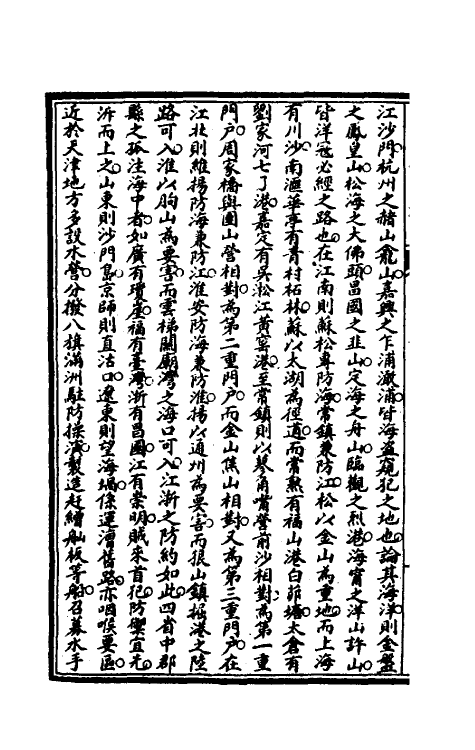 江沙門杭州之赭山龕山嘉興之乍浦澉浦皆海盜窺犯之地也論其海洋則金盤
之鳳皇山松海之大佛頭昌國之韭山定海之舟山臨觀之烈港海甯之洋山許山
皆洋冦必經之路也在江南則蘇松專防海常鎮兼防江松以金山為重地而上海
有川沙南滙華亭有青村柘林蘇以太湖為徑道而常熟有福山港白茆塘太倉有
劉家河七丫港嘉定有吳淞江黃窰港至常鎮則以拳角嘴營前沙相對為第一重
門户周家橋與圌山營相對為第二重門户而金山焦山相對又為第三重門户在
江北則維揚防海兼防江淮安防海兼防淮揚以通州為要害而狼山鎮楊港之陸
路可入淮以朐山為要害而雲梯關廟灣之海口可入江浙之防約如此四省中郡
縣之孤注海中者如廣有瓊崖福有臺灣浙有昌國江有崇明賊來首犯防禦宜先
泝而上之山東則沙門島京師則直沽口遼東則望海堝係運漕舊路亦咽喉要區
近於天津地方多設水營分撥八旗滿洲駐防操演製造赶繒舢板等船召募水手